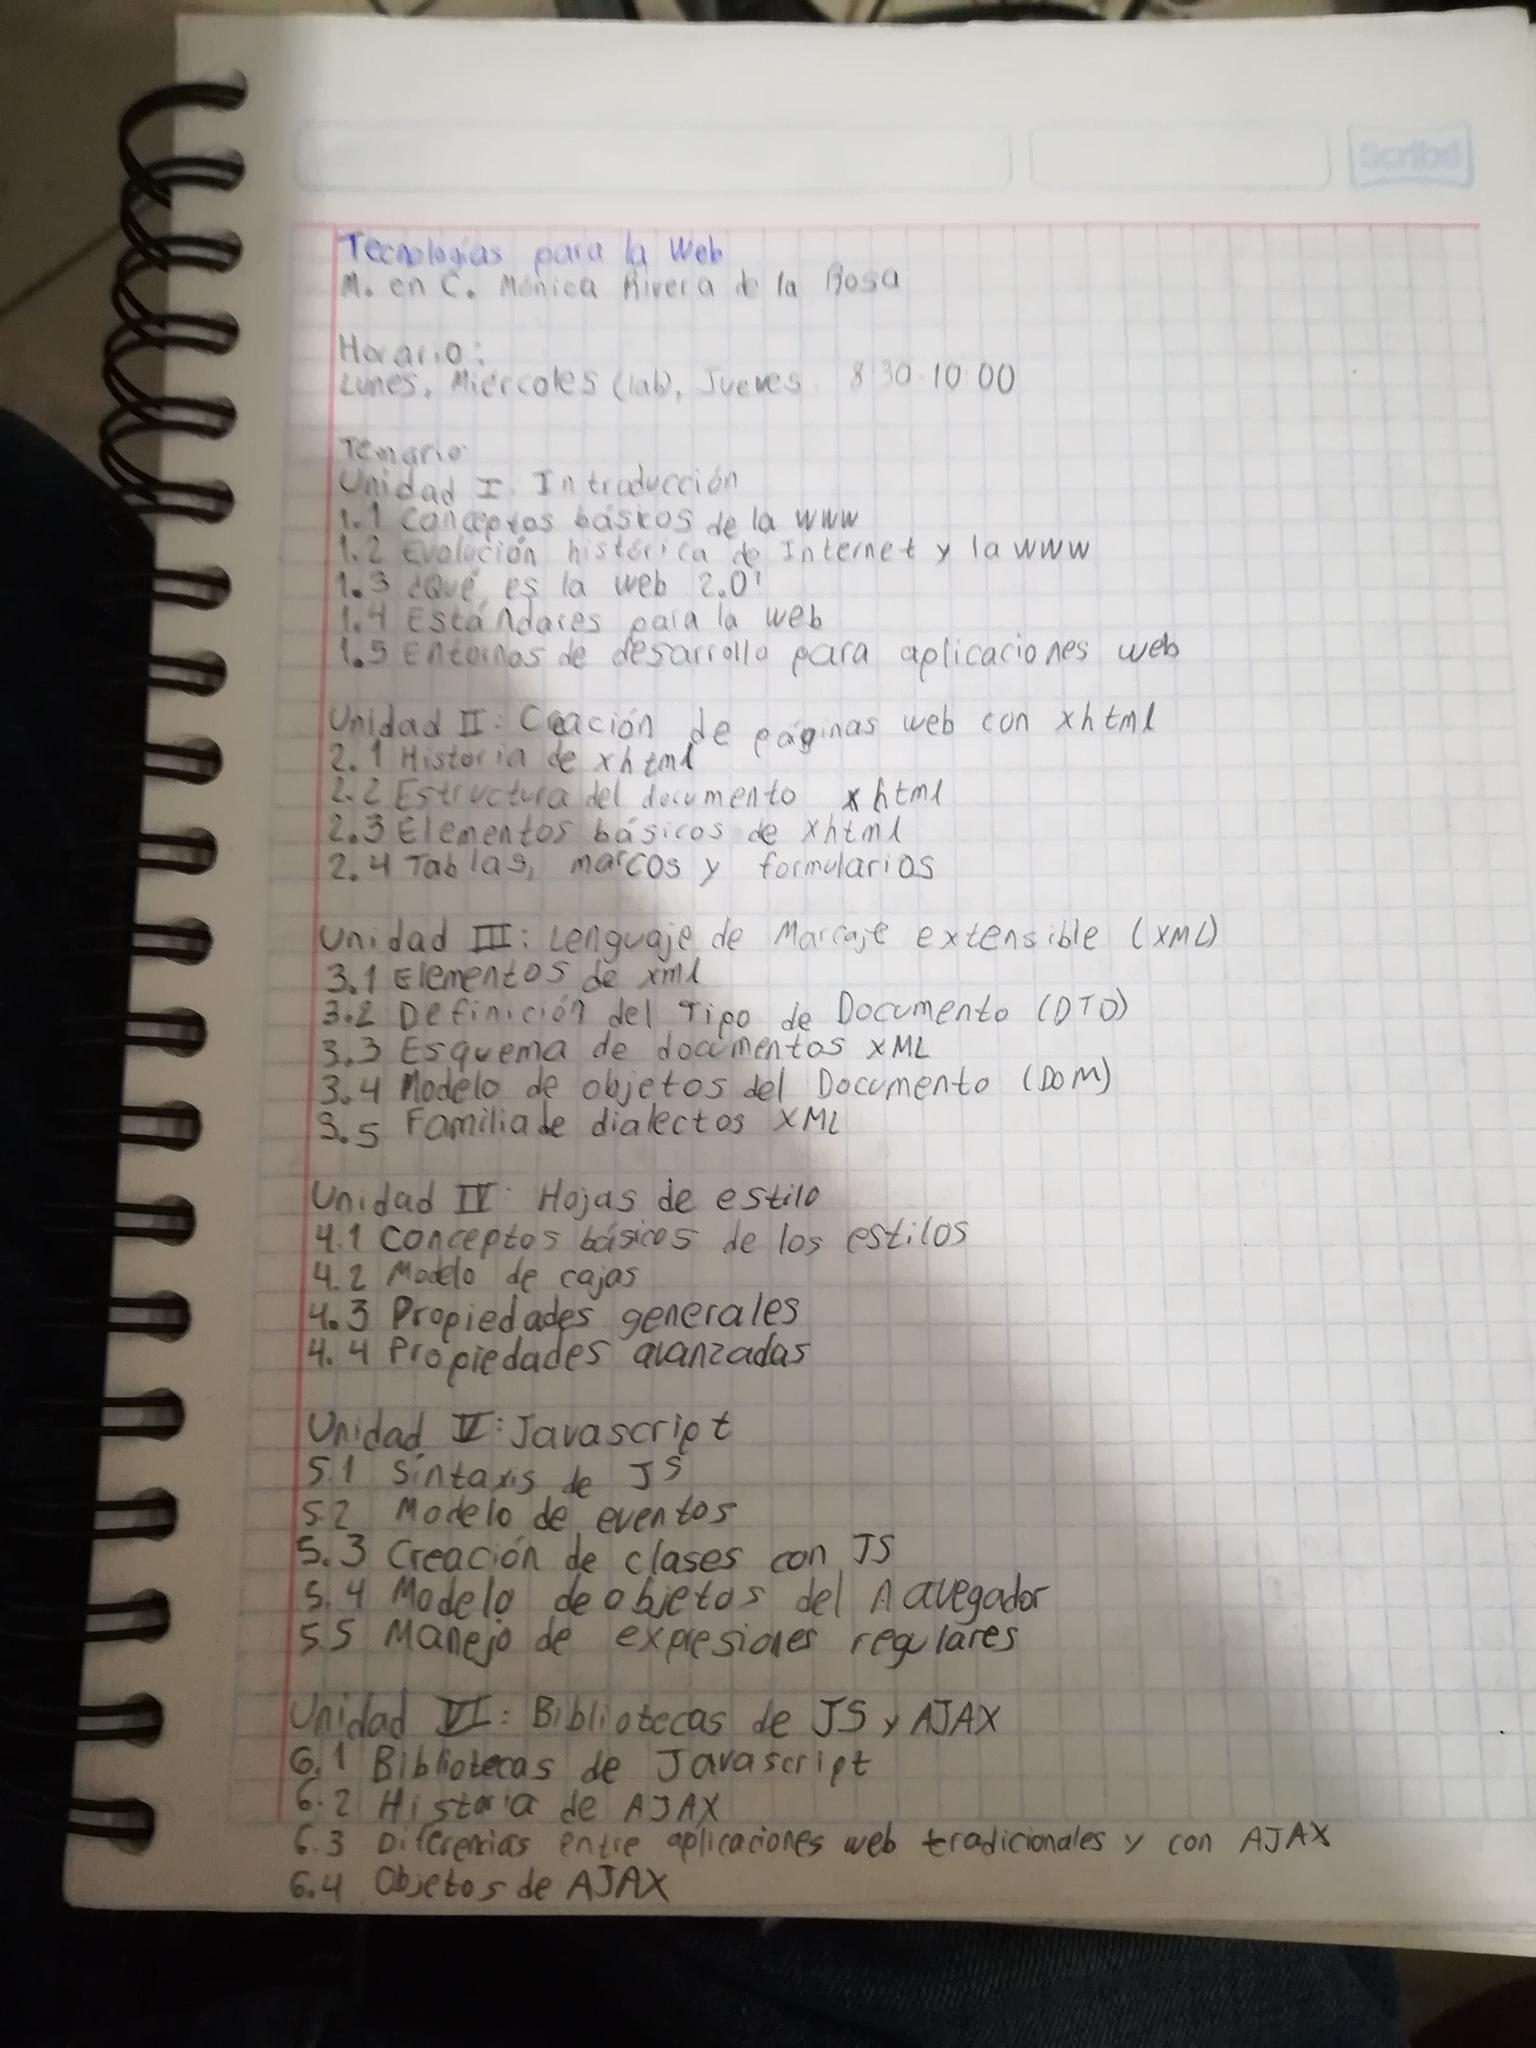 Scribe
Tecnologías para la Web
M. en C. Mónica Rivera de la Rosa
Horario:
Lunes, Miércoles (lab), Jueves 8:30-10:00
Temario
Unidad I. Introducción
1.1 Conceptos básicos de la www
1.2 Evolución histórica de Internet y la www
1.3 ¿Qué es la web 2.0?
1.4 Estándares para la web
1.5 Entornos de desarrollo para aplicaciones web
Unidad II: Creación de páginas web con xhtml
2.1 Historia de xhtml
2.2 Estructura del documento xhtml
2.3 Elementos básicos de xhtml
2.4 Tablas, marcos y formularios
Unidad III: Lenguaje de Marcaje extensible (XML)
3.1 Elementos de xml
3.2 Definición del Tipo de Documento (DTD)
3.3 Esquema de documentos XML
3.4 Modelo de objetos del Documento (DOM)
3.5 Familia de dialectos XML
Unidad IV: Hojas de estilo
4.1 Conceptos básicos de los estilos
4.2 Modelo de cajas
4.3 Propiedades generales
4.4 Propiedades avanzadas
Unidad V: Javascript
5.1 Sintaxis de JS
5.2 Modelo de eventos
5.3 Creación de clases con JS
5.4 Modelo de objetos del navegador
5.5 Manejo de expresiones regulares
Unidad VI: Bibliotecas de JS y AJAX
6.1 Bibliotecas de Javascript
6.2 Historia de AJAX
6.3 Diferencias entre aplicaciones web tradicionales y con AJAX
6.4 Objetos de AJAX